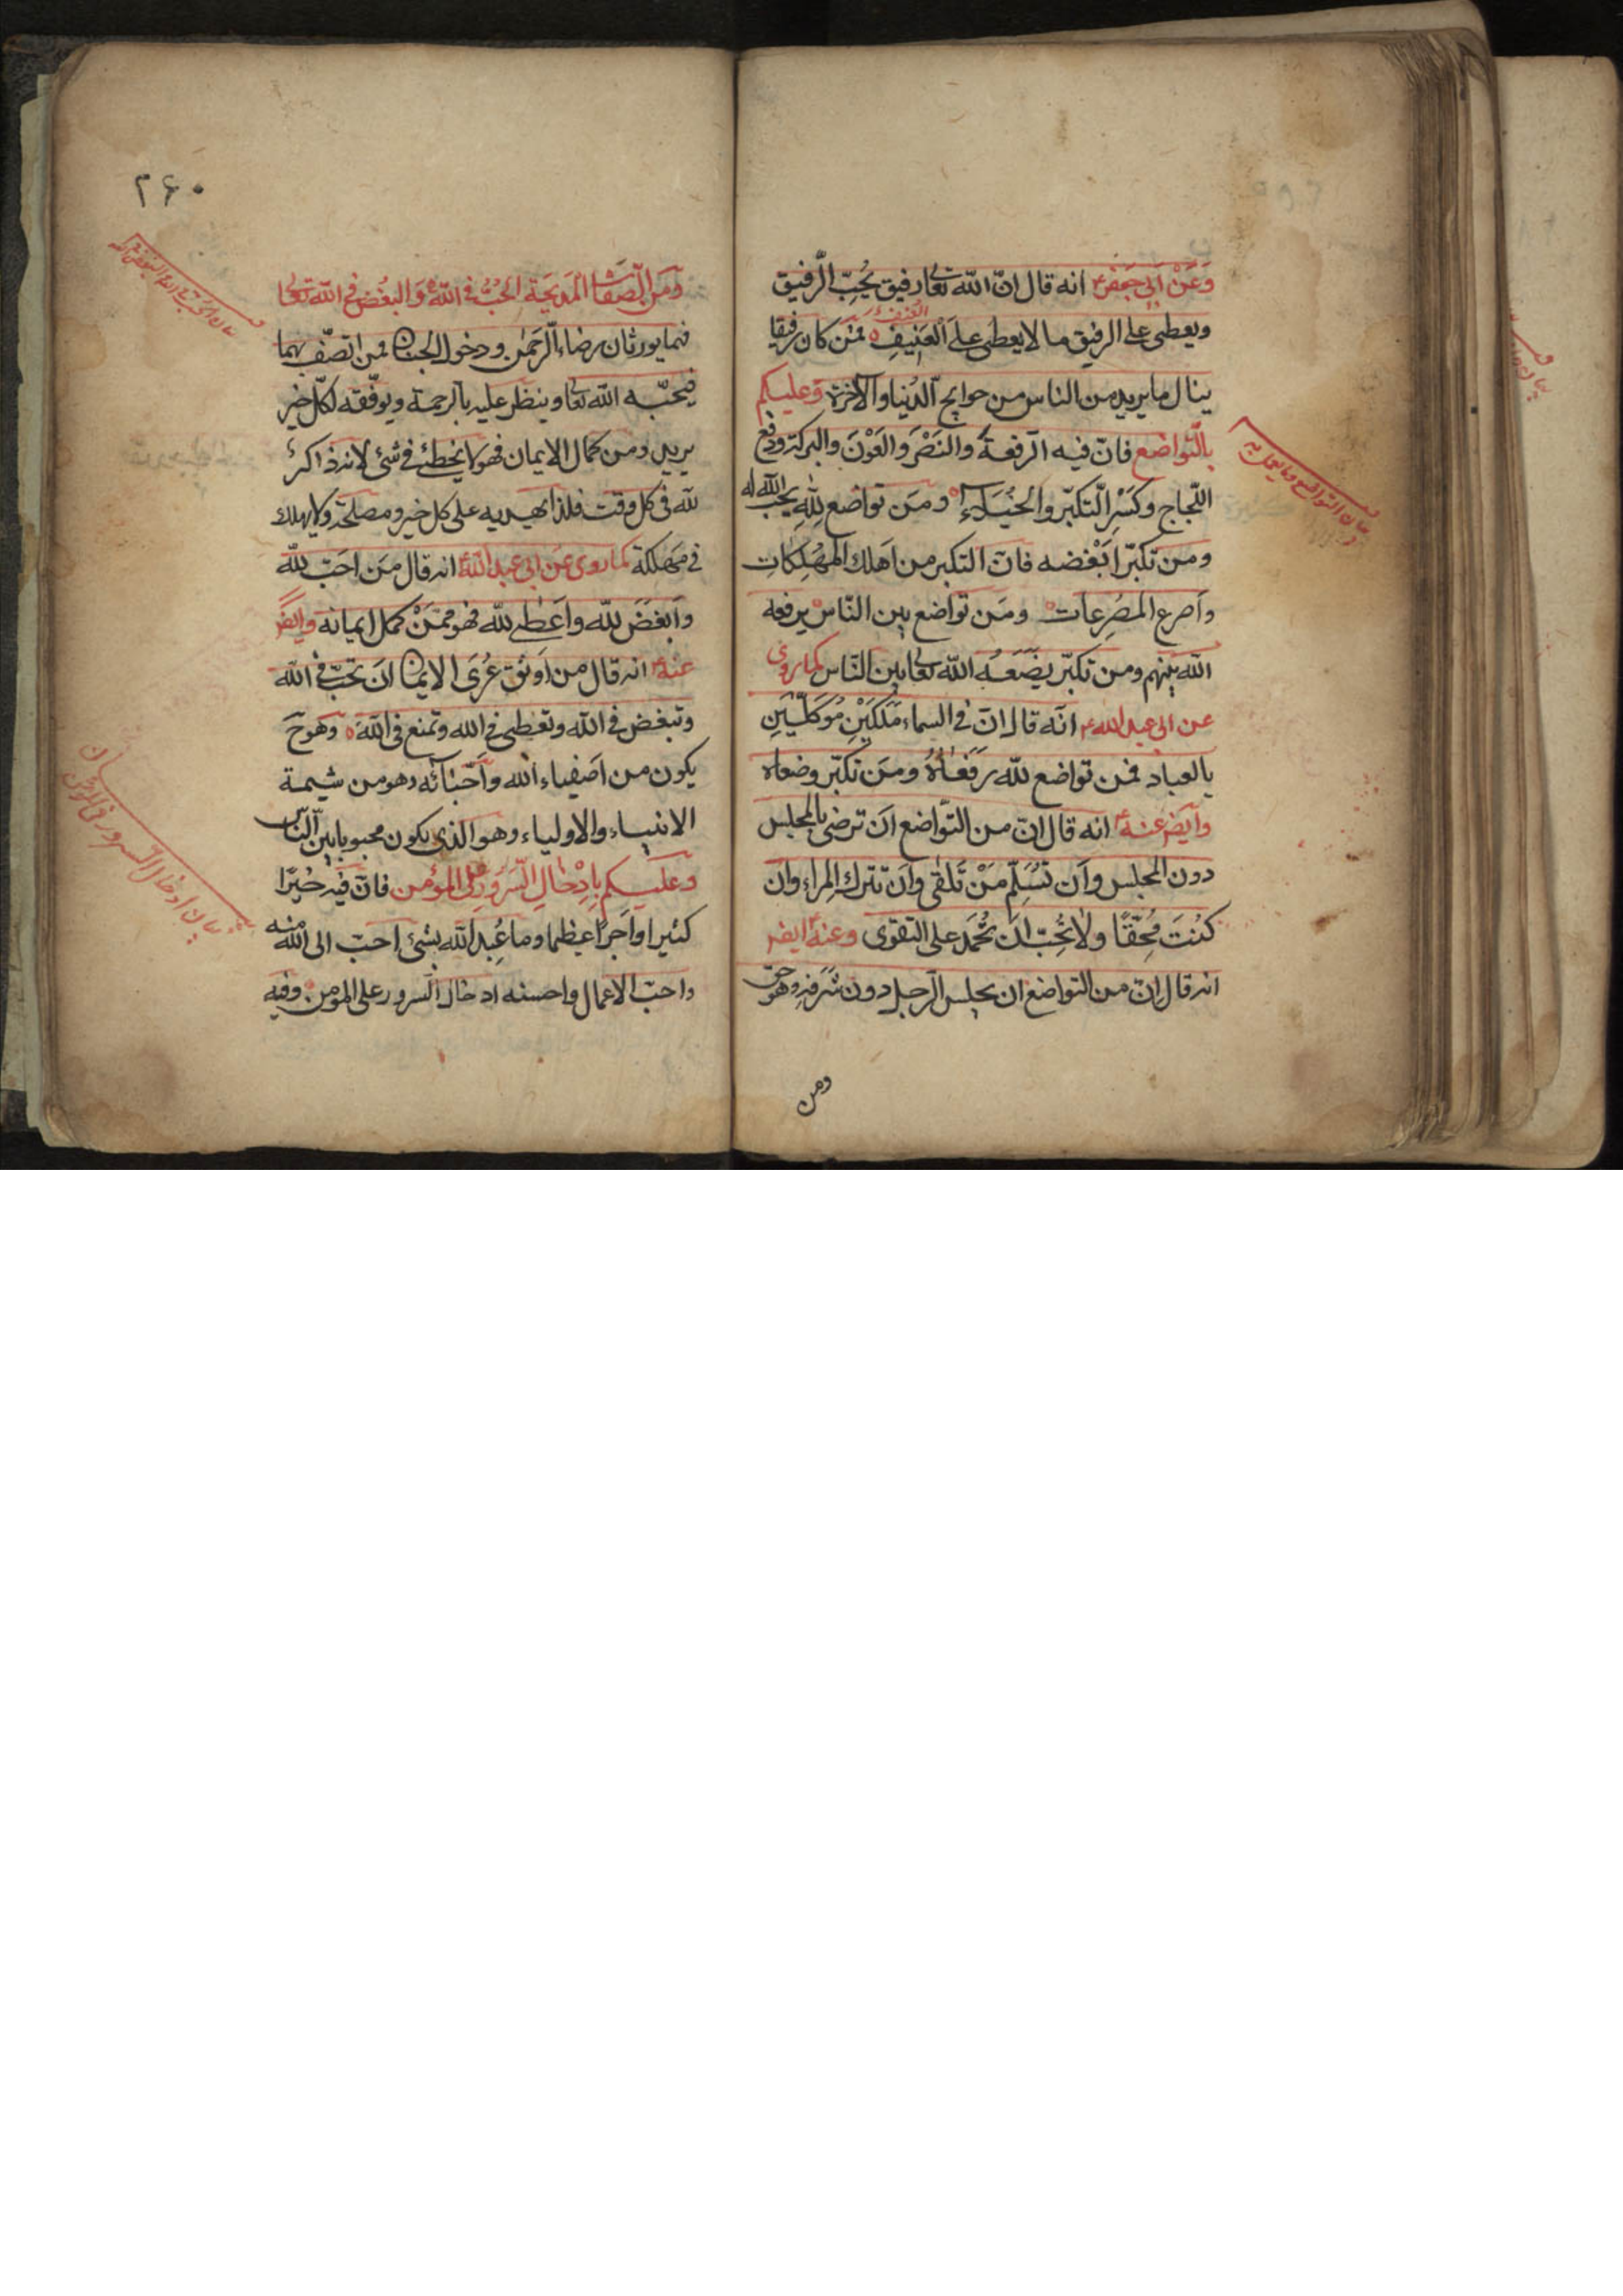 وَعَنْ اَبی جَعْفَرٍ؏ انه قال انّ اللّه تعالی رفیق یُحِبّ الرّفیق
ویعطی علی الرفیق ما لا یعطی علَی العَنِیفِ فمن کان رفیقا
العُنف
ینال ما یرید من الناس من حوایج الدّنیا والآخرة وعلیکم
بالتّواضع فانّ فیه الرفعةَ والنَصْرَ والعَوْنَ والبرکة ودفع
اللّجاج وکَسْرِ التّکبّر والخُیَلاءِ ومَن تواضع لِلّهِ یحبّ اللّه له
ومن تکبّر اَبْغَضه فانّ التکبر من اهلك المُهْلِکاتِ
واَصرع المُصْرِعات ومَن تواضع بین النّاس یرفعه
اللّه بینهم ومن تکبّر یضَعَهُ اللّه تعالی بین النّاس کما روی
عن ابی عبد اللّه؏ انّه قال انّ فی السماء مَلَکَیْنِ مُوَکَّلَیْنِ
بالعباد فمن تواضع للّه رَفَعاهُ ومَن تکبّر وضعاه
وایضً عنه؏ انه قال انّ من التّواضع اَن ترضی بالمجلس
دون المجلس واَن تُسَلِّم مَنْ تَلقی واَن تترك المِراء وان
کُنتَ مُحِقًّا ولا تُحِبّ ان تُحْمَد علی التقوی وعنه؏ ایضً
انه قال انّ من التواضع ان یجلس الرّجل دون شرفه وهو حق
ومن
بیان التواضع وما یعمل به
۲۶۰
ومن الصّفات المَدیحَةِ الحُبُّ فی اللّه وَالبُغْضُ فی اللّه تعالی
فهما یورثان رضاء الرّحمٰن ودخول الجنان فمن اتّصف بهما
فیحبّه اللّه تعالی وینظر علیه بالرحمة ویوفّقه لکلّ خیر
یرید ومن کمال الایمان فهو لا یخطئ فی شئ لانه ذاکرٌ
للّه فی کل وقت فلذا یهدیه علی کل خیر ومصلحة ولا یهلك
فی مَهلکة کما روی عن ابی عبد اللّه؏ انه قال مَن احَبّ للّه
واَبغضَ للّه واَعطی للّه فهو ممّنْ کمل ایمانه وایضً
عنه؏ انه قال من اَوثق عُرَی الایمان ان تحبّ فی اللّه
وتبغض فی اللّه وتعطی فی اللّه وتمنع فی اللّه وهو ح
یکون من اَصفیاء اللّه واَحبّائه وهو من شیمة
الانبیاء والاولیاء وهو الذی یکون محبوبا بین النّاس
وعلیکم بِاِدْخالِ السّرُورِ علی المؤمن فانّ فیه خَیْرًا
کثیرا واَجرًا عظیما وما عُبِدَ اللّه بشئ احبّ الی اللّه منه
واحبّ الاعمال واحسنه ادخال السّرور علی المؤمن وفیه
بیان الحُبّ فی اللّه والبغض فی اللّه
بیان ادخال السرور فی المؤمن